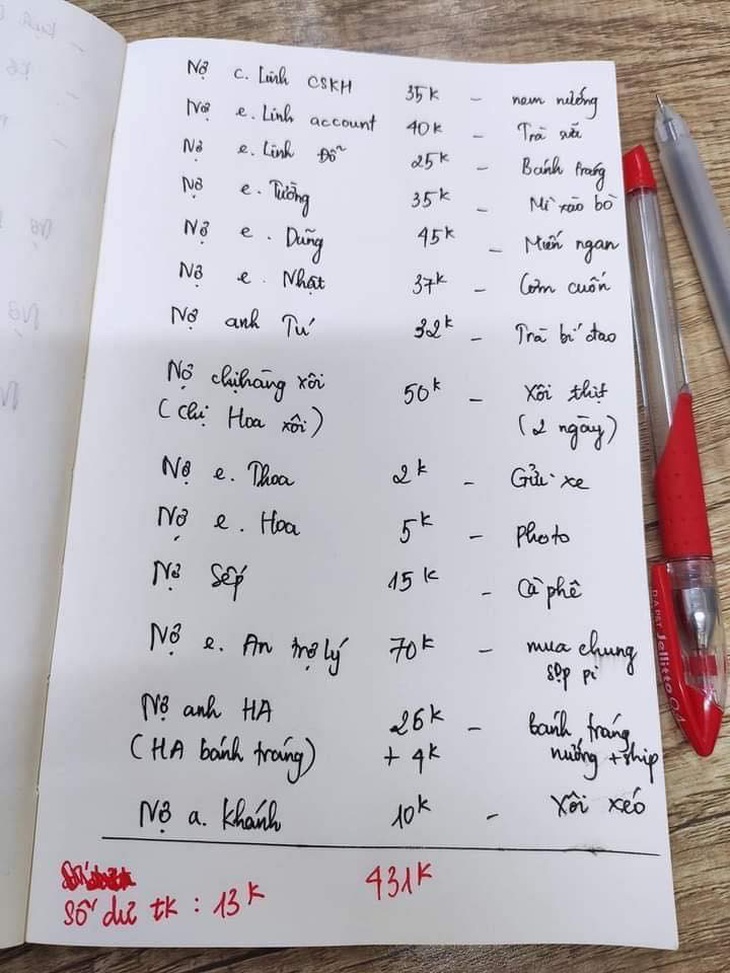 Nợ c. Linh CSKH 35k - nem nướng
Nợ e. Linh account 40k - Trà sữa
Nợ e. Linh Đỗ 25k - Bánh tráng
Nợ e. Tưởng 35k - Mì xào bò
Nợ e. Dũng 45k - Miến ngan
Nợ e. Nhật 37k - Cơm cuốn
Nợ anh Tú 32k - Trà bí đao
Nợ chị hàng xôi 50k - Xôi thịt
(Chị Hoa xôi) (2 ngày)
Nợ e. Thoa 2k - Gửi xe
Nợ e. Hoa 5k - photo
Nợ Sếp 15k - Cà phê
Nợ e. An trợ lý 70k - mua chung
sọp pi
Nợ anh HA 26k - bánh tráng
(HA bánh tráng) + 4k nướng + ship
Nợ a. Khánh 10k - Xôi xéo
431k
Số dư tk : 13k
Jellitto 0.4